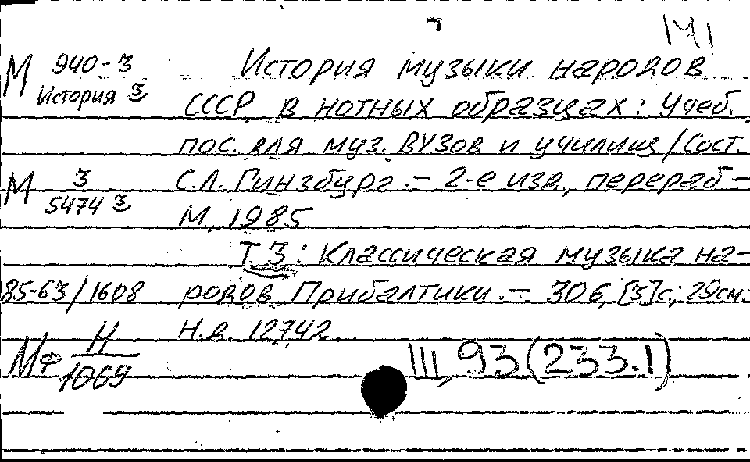 М 940-3 История музыки народов
История 3 СССР в нотных образцах: Учеб.
пос. для муз. ВУЗов и училищ / Сост.
М 3 С.Л. Гинзбург. – 2-е изд., перераб –
5474 3 М, 1985
Т 3: Классическая музыка на-
85-63/1608 родов Прибалтики. – 306, [3] с; 29см.
Н.д. 12742
Мф Н III, 93 (233.1)
1069